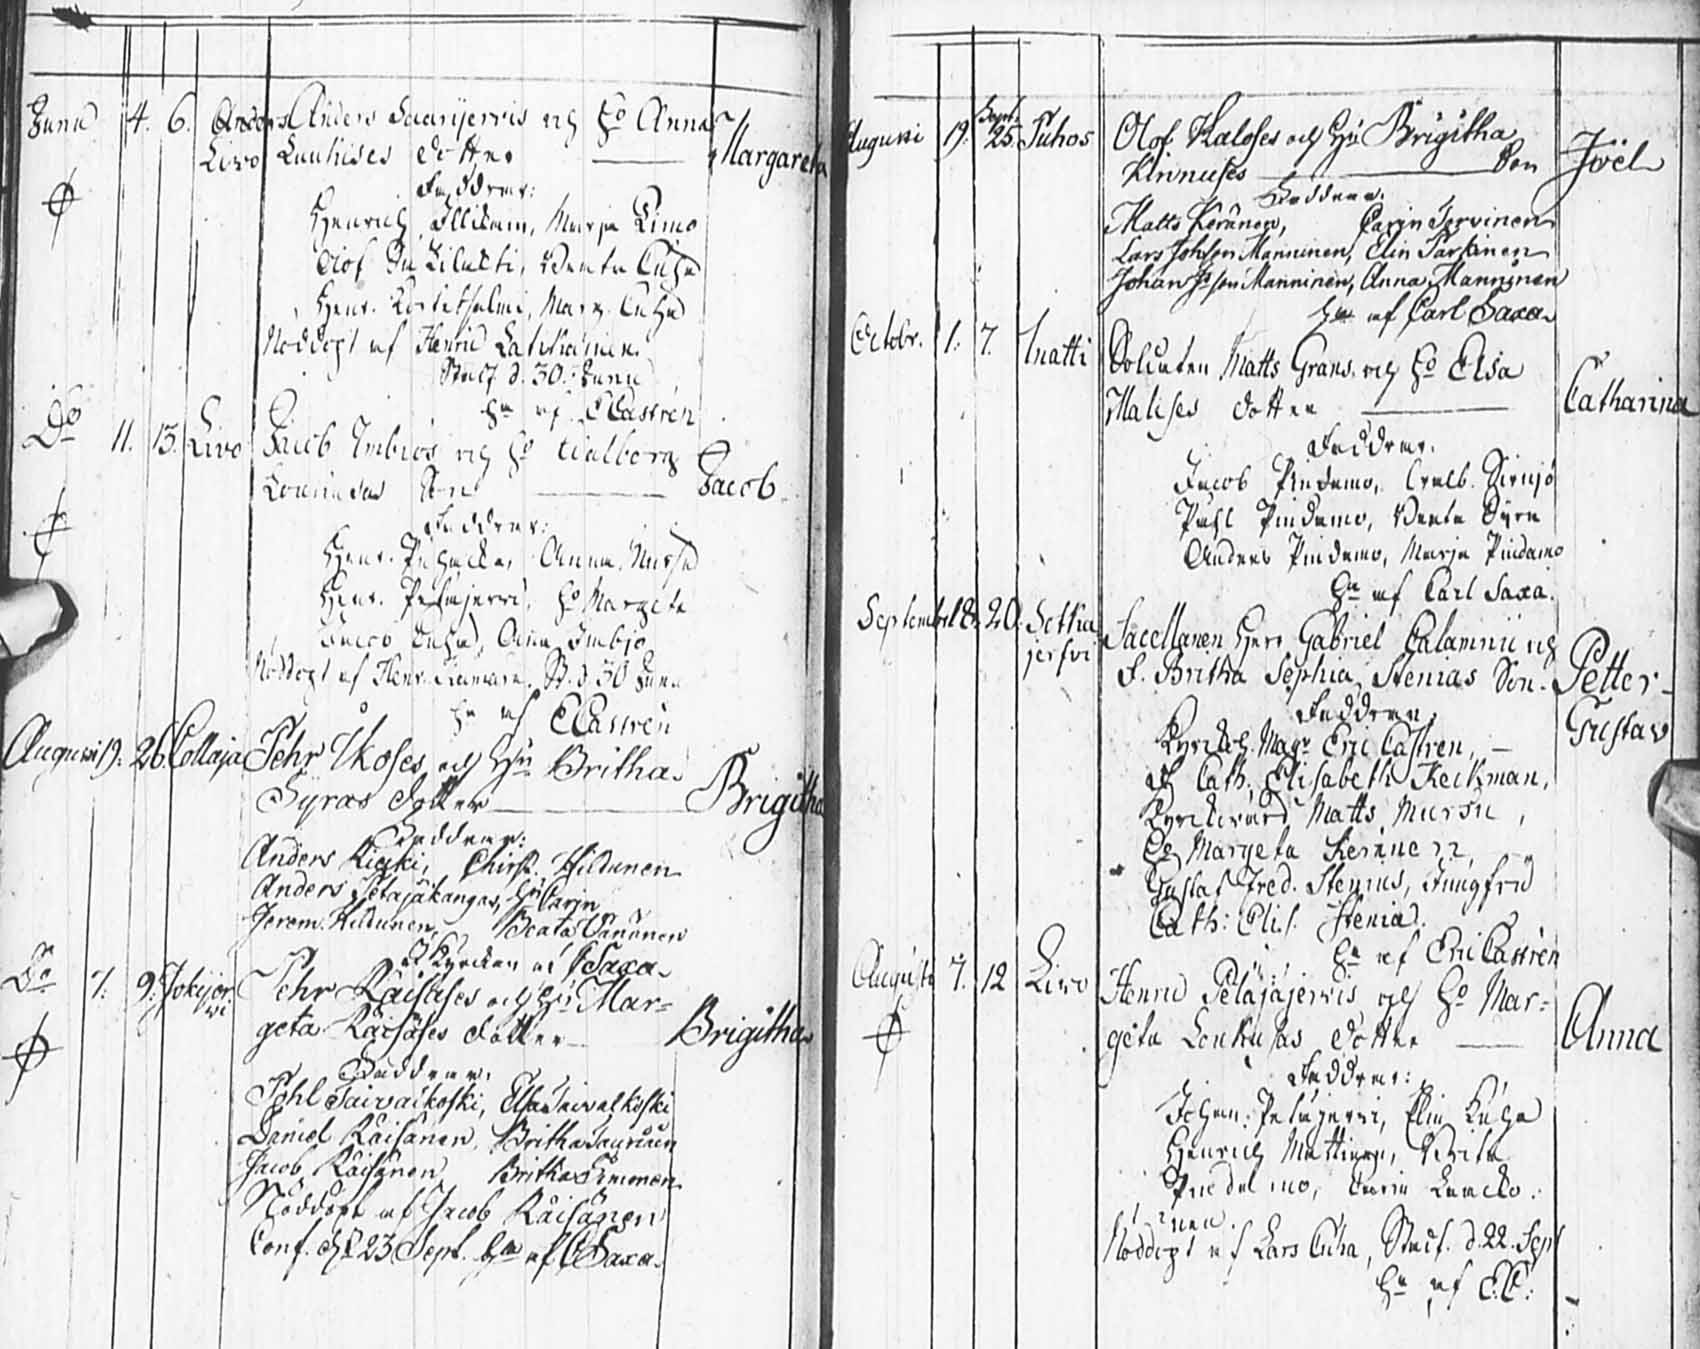 Junii 4. 6. Livo Anders Saarijervis och Ho Anna
Lauhises dotter Margareta
Faddrar:
Henrich Illikain, Marja Limo
Olof
Henr. Kortetsalmi, Marg. Cuha
Nöddöpt af Henric Lahtiainen.
Stadf. d. 30. Junii
Hn af E Castren
Do 11. 13. Livo Jacob Imbiös och Ho Walborg
Son Jacob
Faddrar:
Henr. Anna Mursu
Henr. Petäjervi, Ho Margeta
Jacob Cuha, Anna Imbjo
Nöddöpt af Henr. St. d. 30 Junii
Hn af E Castren
Augusti 19. 26. Collaja Pehr Ikoses och Hu Britha
Syras dotter Brigitha
Faddrar:
Anders Kicki, Christ. Hildunen
Anders Petajäkangas, Hu Carin
Jerem. Hildunen, Beata Vänänen
I Kyrckan af C Saxa
Do 7. 9. Jokijer
vi
Pehr Räisäses och Hu Mar=
geta Räisäses dotter Brigitha
Faddrar:
Pohl Taivalkoski, Elsa Taivalkoski
Daniel Räisänen, Britha Laurinen
Jacob Räisänen Britha Simonen
Nöddöpt af Jacob Räisänen
Conf. d. 23 Sept. Hn af C Saxa
Augusti 19. Sept. 25. Puhos Olof Kaloses och Hu Brigitha
Kinnuses Son Joël
Faddrar:
Matts Keränen, Carin Tervinen
Lars Johsson Manninen, Elin Parkinen
Johan Jsson Manninen, Anna Manninen
Hn af Carl Saxa
Octobr. 1. 7. Inatti Soldaten Matts Grans och Ho Elsa
Malises dotter Catharina
Faddrar.
Jacob Pindamo, Walb. Sirnjö
Påhl Pindamo, Beata Syre
Anders Pindamo, Marja Pindamo
Hn af Carl Saxa.
September 18. 20. Setka
jersvi
Sacellanen Herr Gabriel Calamnii och
F. Britha Sophia Stenias Son. Petter
Gustav
Faddrar
Kyrckoh. Magr Eric Castren,
Cath. Elisabeth Keckman,
Kyrckovärd Matts Mursu,
Margeta Keränen,
Gustaf Fred. Stenius, Jungfru
Cath: Elis. Stenia.
Hn af Eric Castren
Augusti 7. 12 Livo Henric Petäjäjervis och Ho Mar=
geta Lonkusas dotter Anna
Faddrar:
Johan. Petäjervi, Elin Cuha
Henrich Mattinen, Brita
Pindamo, Carin
nen.
Nöddöpt af Lars Cuha, Stadf. d. 22. Sept
Hn af E.C.